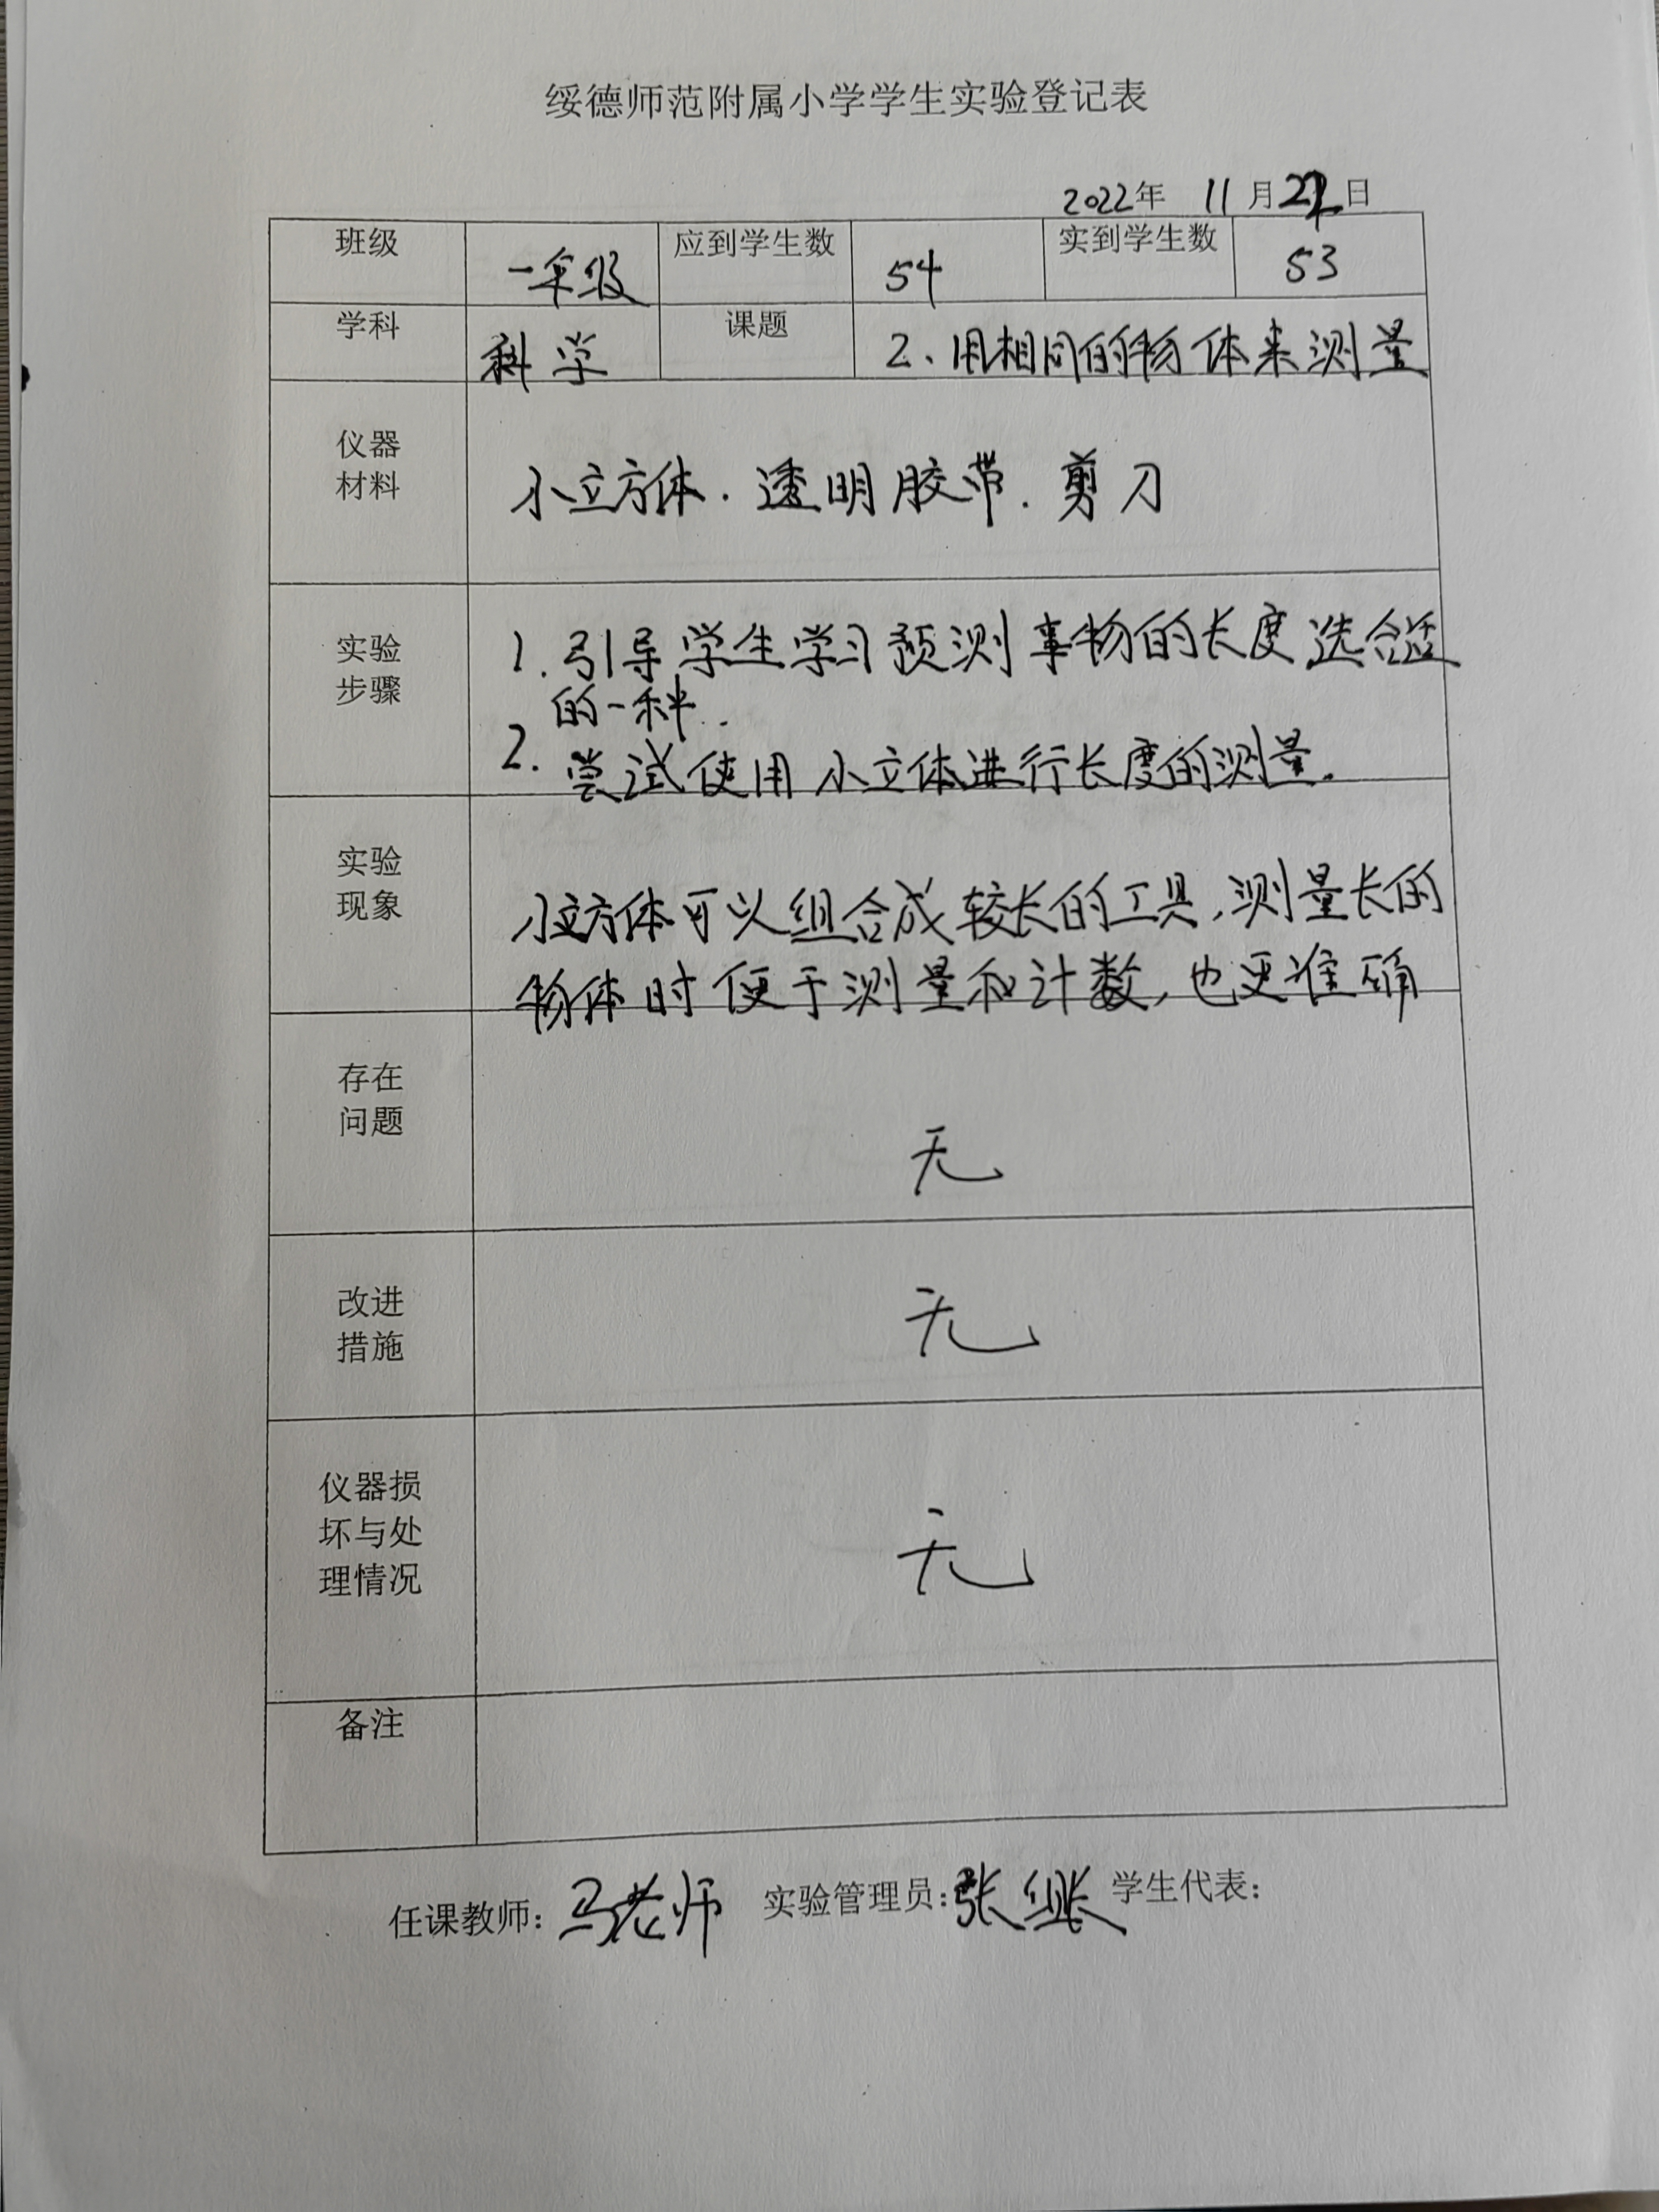 绥德师范附属小学学生实验登记表
2022年 11月 日
班级 一年级 应到学生数 54 实到学生数 53
学科 科学 课题 2、用相同的物体来测量
仪器
材料
小立方体.透明胶带.剪刀
实验
步骤
1.引导学生学习预测事物的长度选合适
的一种.
2.尝试使用小立体进行长度的测量.
实验
现象
小立方体可以组合成较长的工具,测量长的
物体时便于测量和计数,也更准确
存在
问题
无
改进
措施
无
仪器损
坏与处
理情况
无
备注
任课教师: 马老师 实验管理员: 张 学生代表: